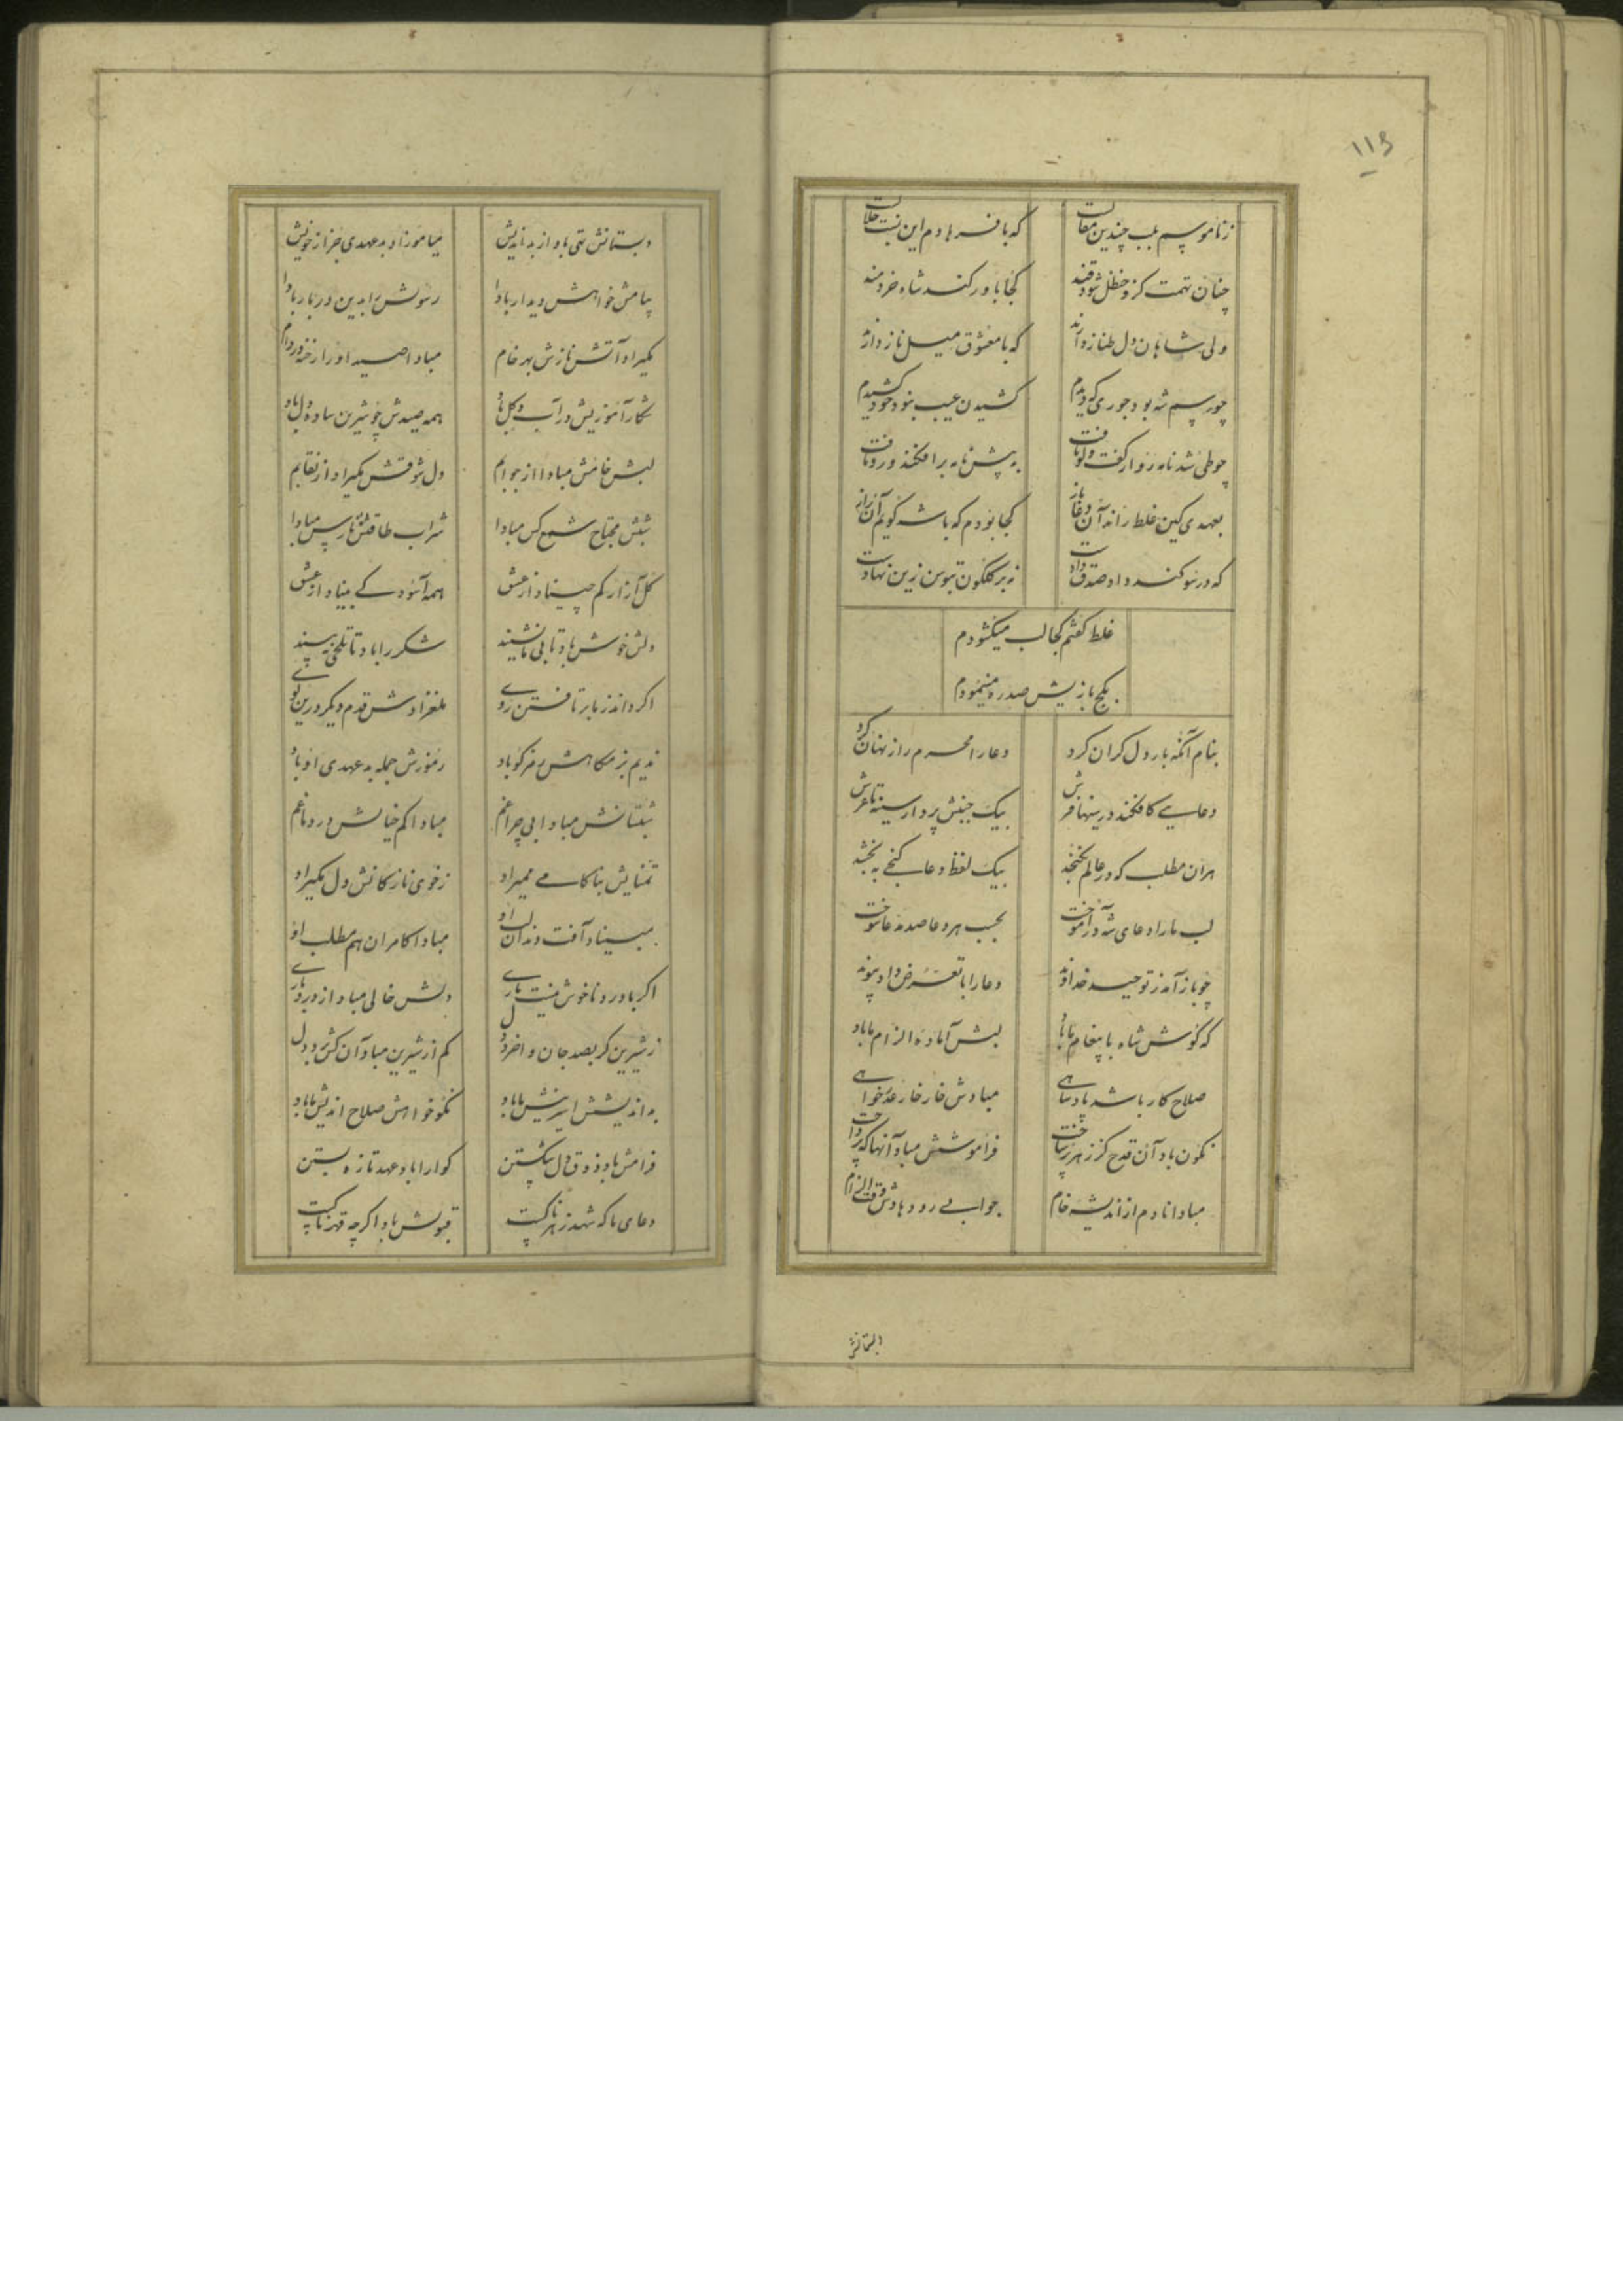 ۱۱۵
که با فرهادم این نسبت حلالست
کجا باور کند شاه خردمند
چنان تهمت کزو حنظل شود قند
که با معشوق میل ناز دارند
ولی شاهان دل طناز دارند
کشیدن عیب بنود خود کشیدم
چو رسم شه بود جوری که دیدم
به پیش نامه بر افکند و رو تافت
چو طی شد نامه رو از گفت و گو تافت
کجا بودم که با شه گویم آن راز
که در سوکند داد صدق دادست
نه بر گلگون تبوسن زین نهادست
غلط گفتم کجا لب میکشودم
بکج بازیش صد ره میبنمودم
بنام آنکه بار دل گران کرد
دعا را محرم راز نهان کرد
بیک جنبش پرد از سینه تا عرش
هر آن مطلب که در عالم نگنجد
بیک لفظ دعا گنجی به بخشد
لب ما را دعای شه در آموخت
چو باز آمد ز توحید خداوند
دعا را با تعرض داد پیوند
که گوش شاه با پیغام ما باد
لبش آماده الزام ما باد
صلاح کار باشد پادشاهی
مبادش خار خار عذرخواهی
نگون باد آن قدح کز زهر پرساخت
فراموشش مباد آنها که پرداخت
مبادا نادم از اندیشه خام
جوابی رو دهادش وقت الزام
دبستانش
دبستانش تهی باد از بداندیش
میاموزاد بدعهدی جز از خویش
پیامش خواهش دیدار بادا
رسولش را بدین در بار بادا
مگیراد آتش نازش بهر خام
شکار آموزیش در آب و گل باد
همه صیدش چو شیرین ساده دل باد
لبش خامش مبادا از جوابم
دل شوقش مگیراد از نقابم
شبش محتاج شمع کس مبادا
شراب طاقتش نارس مبادا
گل آزار کم چیناد از عیش
همه آسودگی بیناد از عیش
دلش خوش باد تا بی ما نشیند
شکر را باد تا تلخی نبیند
اگر داند ز ما بر تافتن روی
ملغزادش قدم دیگر درین کوی
ندیم بزمگاهش رمزگو باد
رموزش جمله بدعهدی او باد
شبستانش مبادا بی چراغم
مبادا کم خیالش در دماغم
تمنایش بناکامی ممیراد
ز خوی نازکانش دل مگیراد
مبیناد آفت دندان لب او
مبادا کامران هم مطلب او
اگر با درد ما خوش نیست باری
دلش خالی مباد از درد یاری
ز شیرین گر بصد جان واخرد دل
کم از شیرین مباد آن کش برد دل
نکو خواهش صلاح اندیش ما باد
فرامش باد ذوق دل شکستن
گوارا باد عهد تازه بستن
دعای ما که شهد زهرناکست
قبولش باد اگر چه قهرناکست